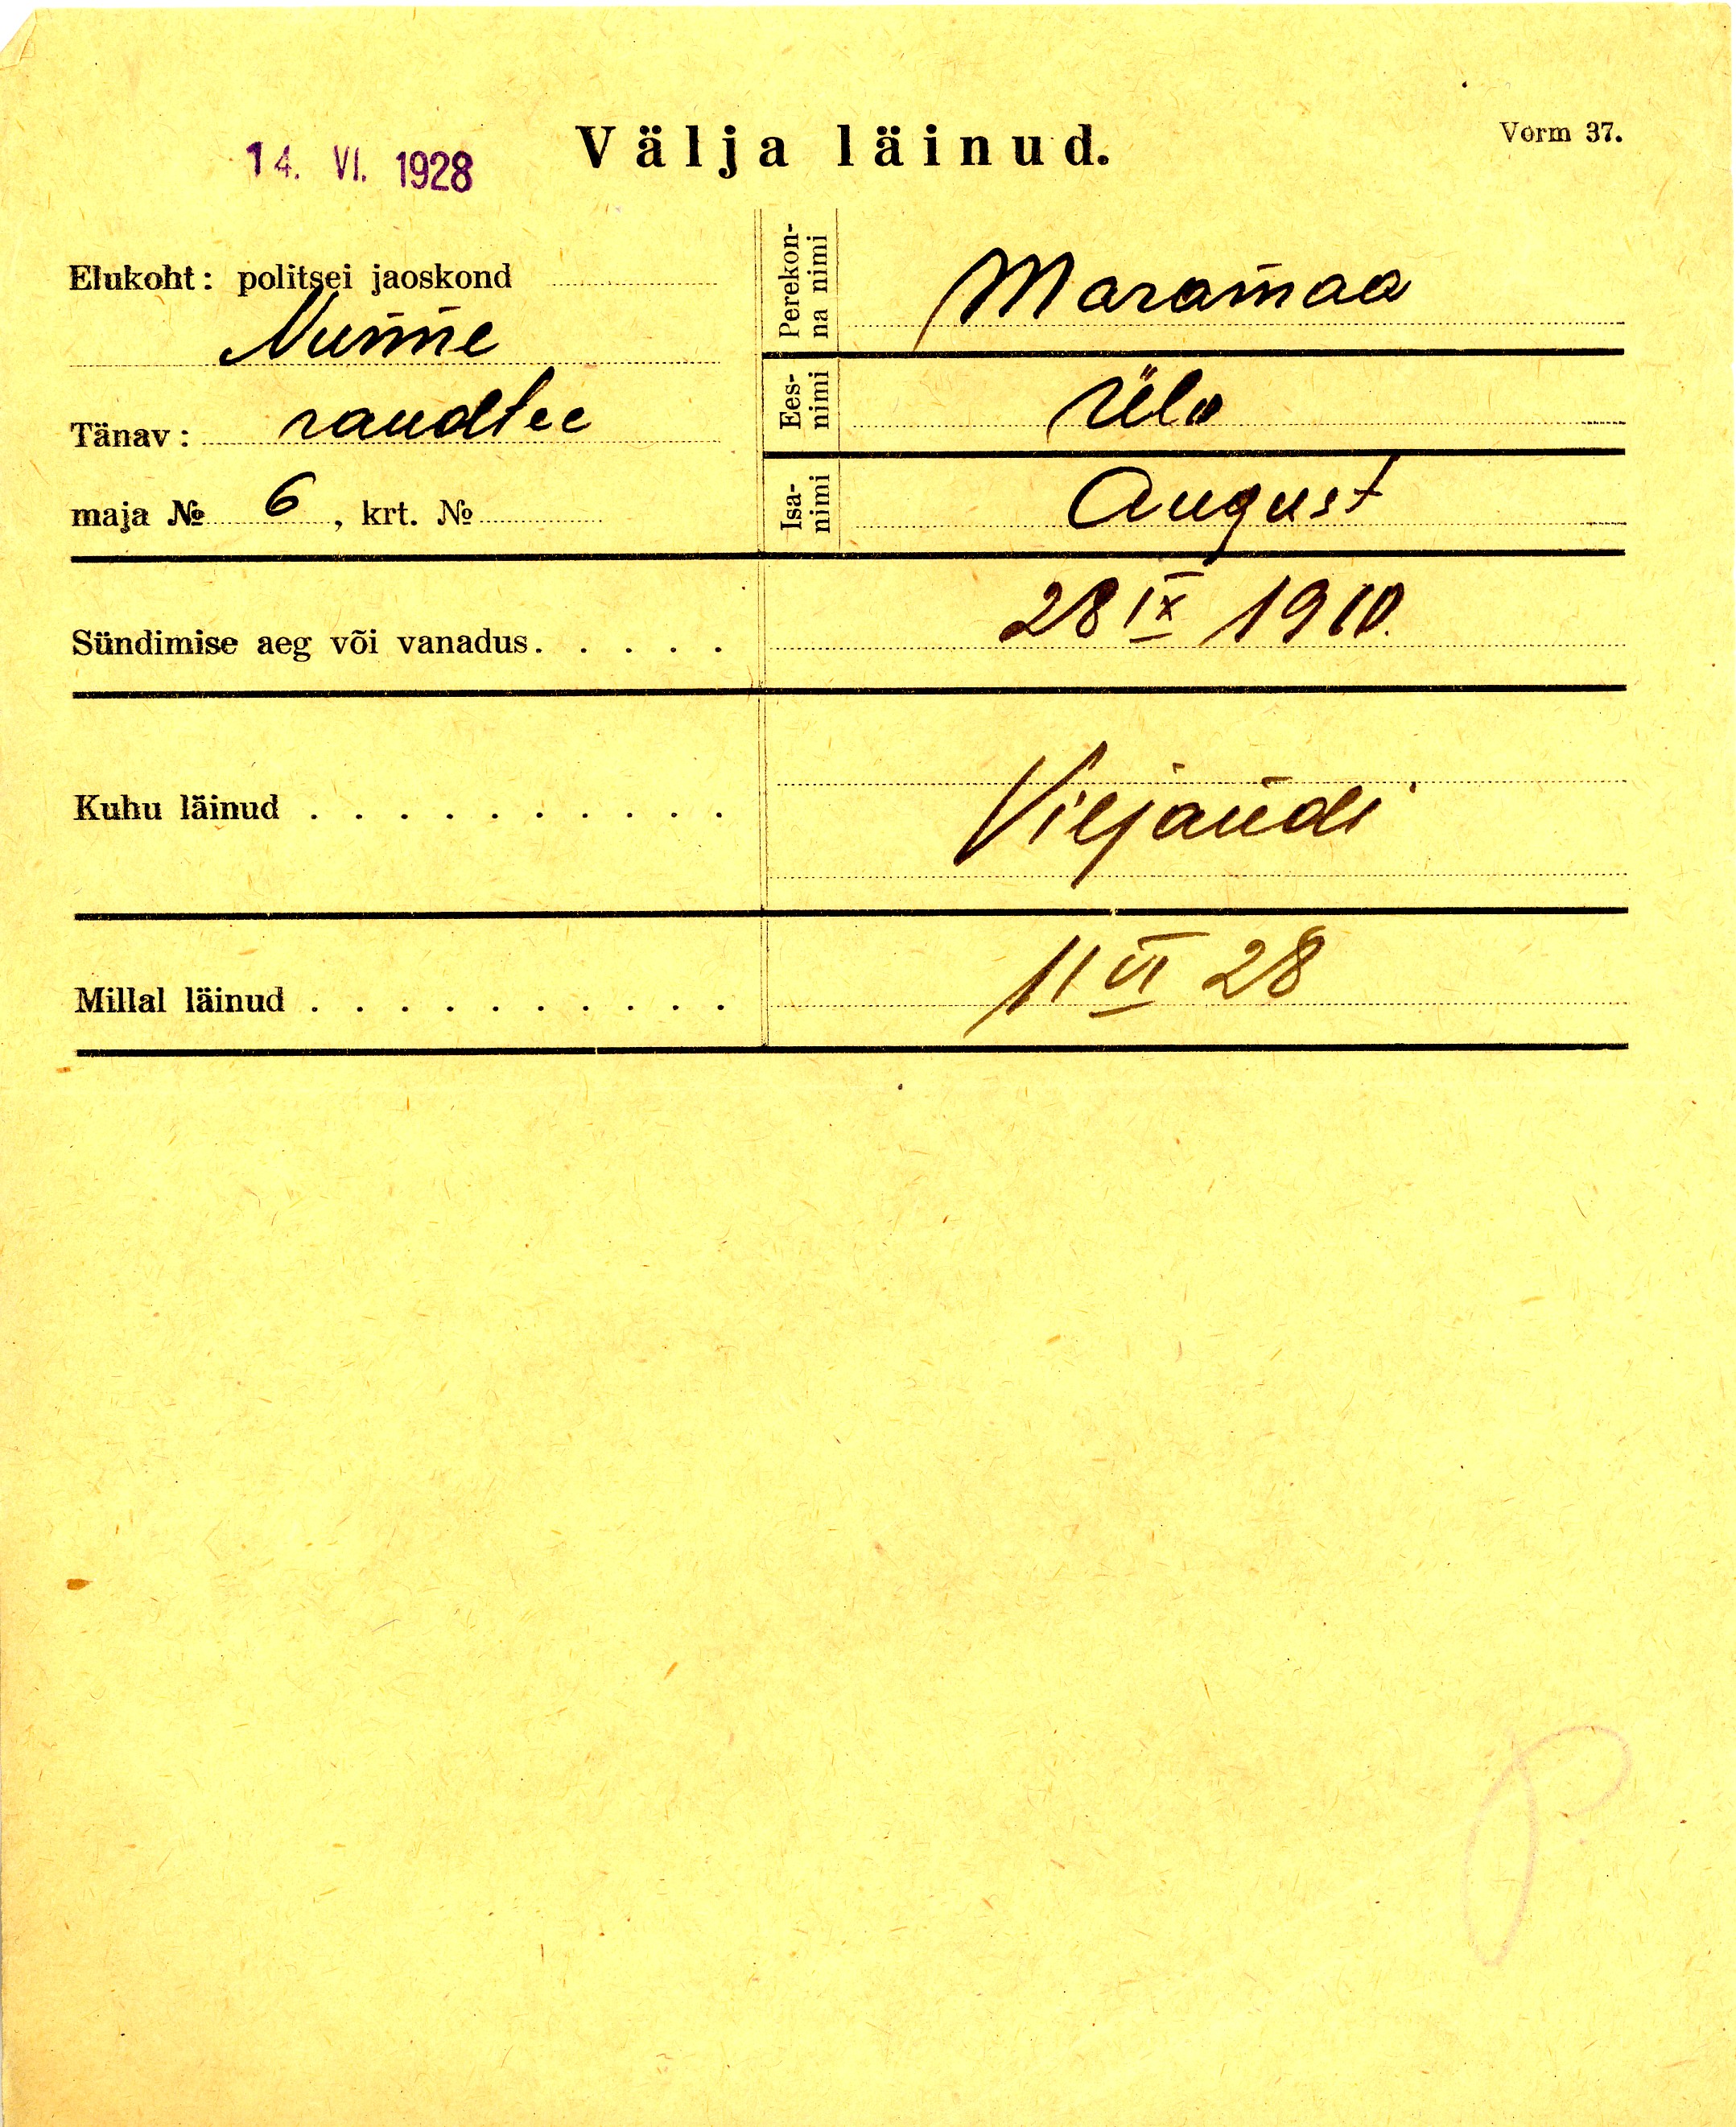 Vorm 37.
14. VI. 1928
Välja läinud.
Elukoht: politsei jaoskond
Numme
Tänav: raudtee
maja № 6, krt. №
Perekon-
na nimi
Maramaa
Ees-
nimi
Ülo
Isa-
nimi
August
Sündimise aeg või vanadus. . . . .
28 IX 1910.
Kuhu läinud . . . . . . . . . .
Viljandi
Millal läinud . . . . . . . . . .
11 VI 28